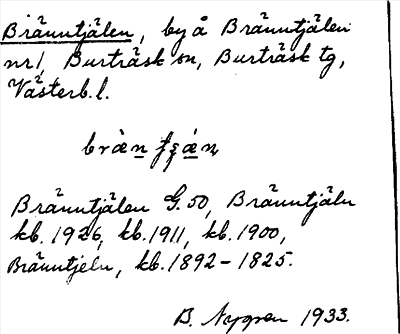 Bränntjälen, by å Bränntjälen
nr 1, Burträsk sn, Burträsk tg,
Västerb. l.
Bränntjälen G. 50, Bränntjäln
kb. 1926, kb. 1911, kb. 1900,
Bränntjeln, kb. 1892-1825.
B. Nygren 1933.